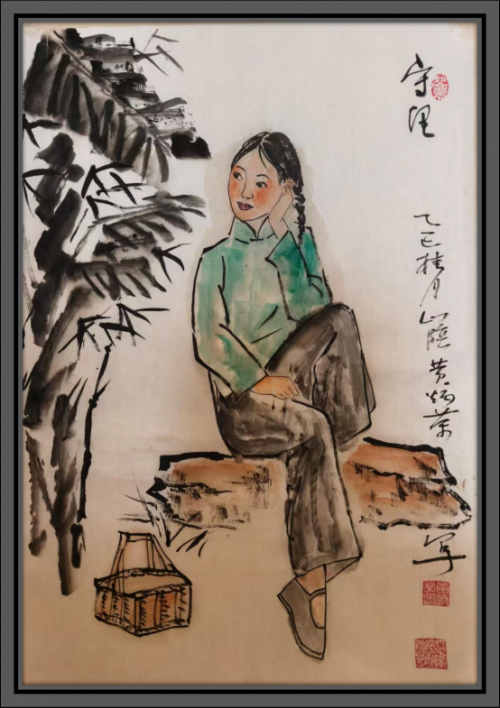 守望
乙巳桂月山阴黄炳荣
写